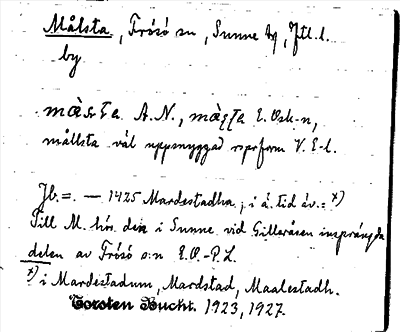 Målsta, Frösö sn, Sunne tg, Jtl. l.
by
màsta A.N., màsta E. Osk-n,
mållsta väl uppsnyggad sprform V. E-l.
Jb. =. — 1425 Mardestadha, i ä. tid äv.: x)
Till M. hör den i Sunne vid Gilleråsen insprängda
delen av Frösö s:n E.O.-P.L.
x) i Mardestadum, Mardstad, Maalestadh.
Torsten Bucht. 1923, 1927.